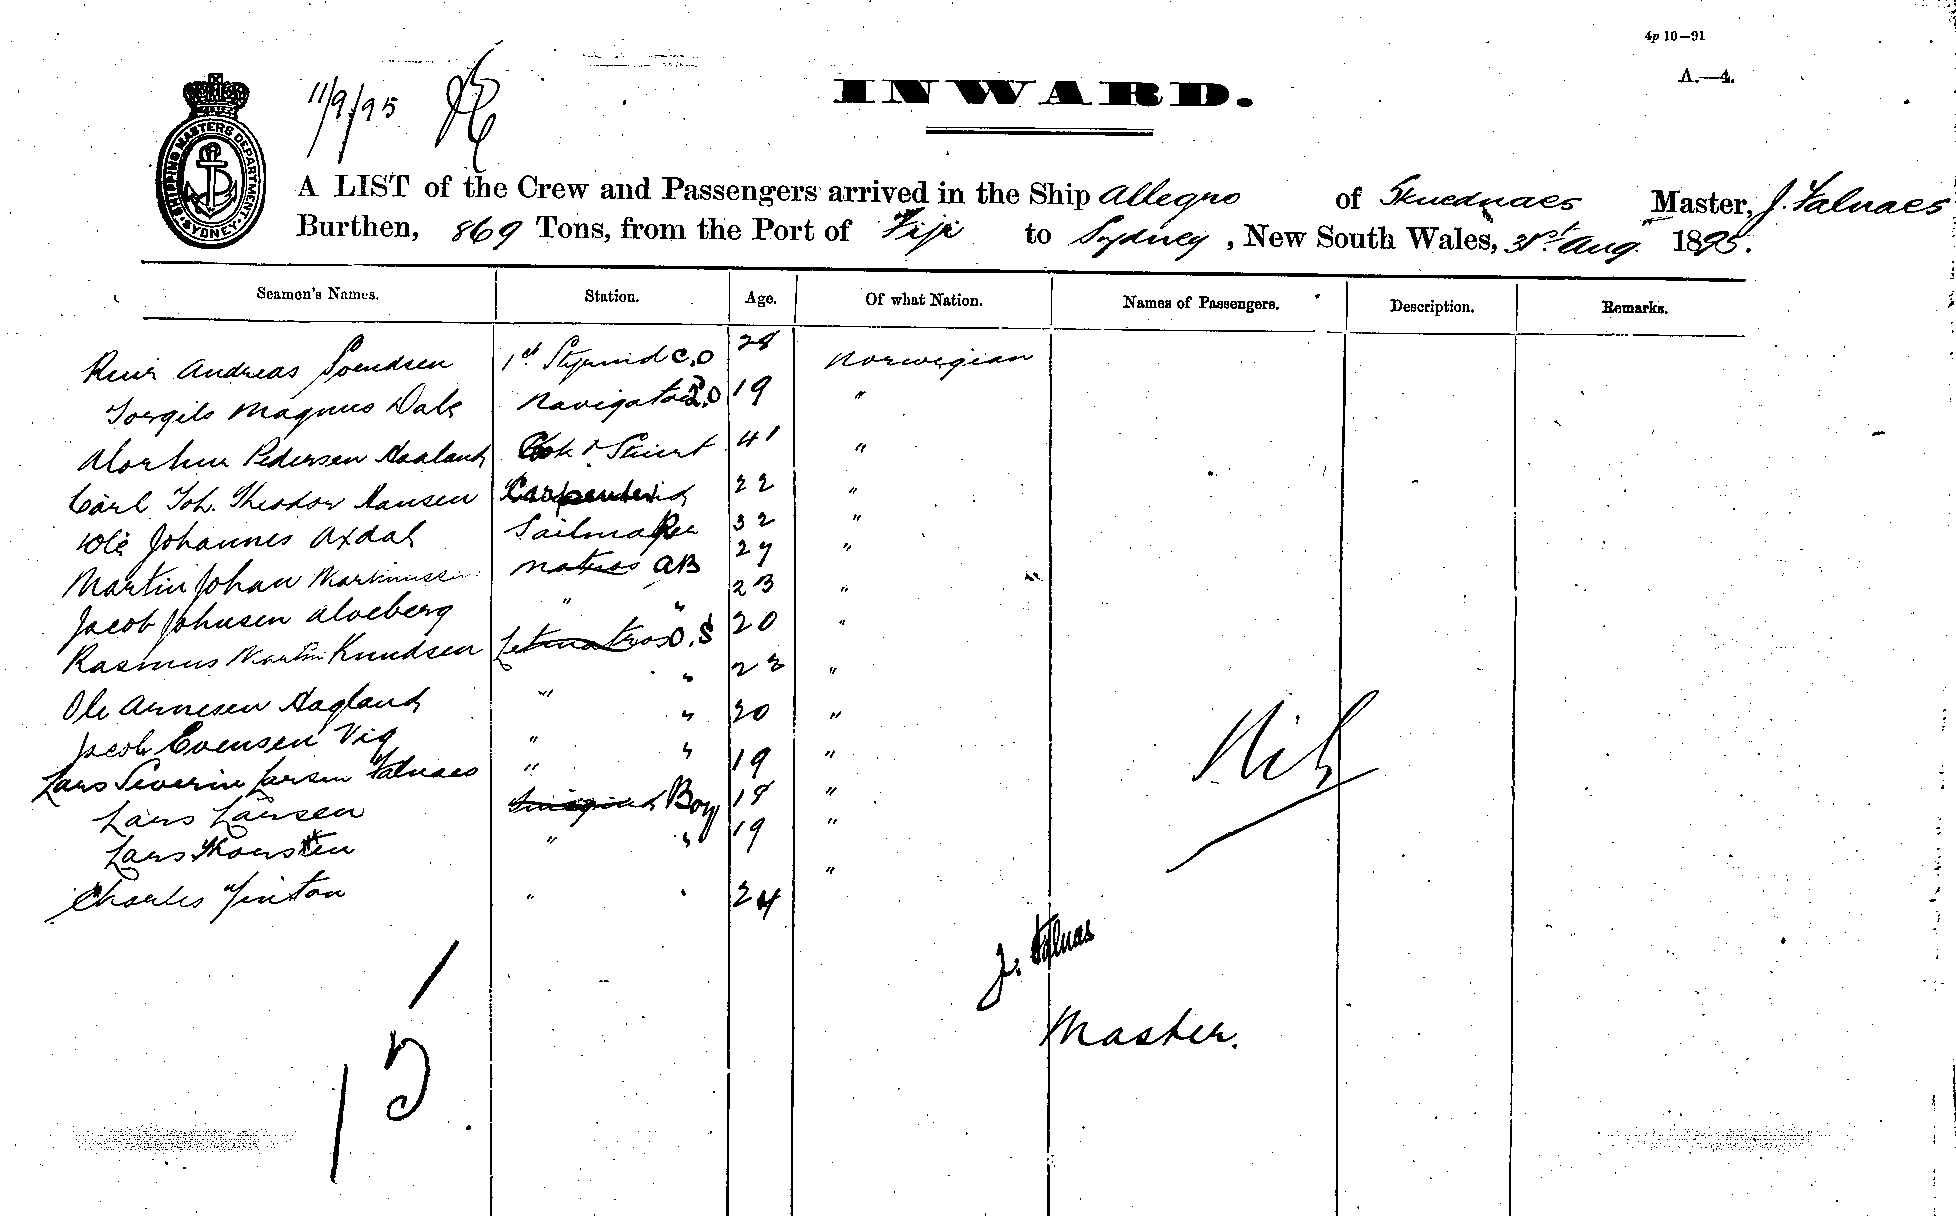 4p 10—91
A.—4.
11/9/95
INWARD.
SHIPPING MASTERS DEPARTMENT SYDNEY
A LIST of the Crew and Passengers arrived in the Ship Allegro of Skuednaes Master, J. Falnaes
Burthen, 869 Tons, from the Port of Fiji to Sydney, New South Wales, 31st Aug. 1895.
Seamen's Names. Station. Age. Of what Nation. Names of Passengers. Description. Remarks.
Andreas Svendsen 1st C.O 28 Norwegian
Torgils Magnus Dale Navigator 2.O 19 "
Pedersen Haaland Cook & Stuert 41 "
Carl Joh. Theodor Hansen Carpenter 22 "
Ole Johannes Axdal Sailmaker 32 "
Martin Johan Markinussen matros AB 27 "
Jacob Johnsen Aloeberg " " 23 "
Rasmus Martin Knudsen Letmatros O.S 20 "
Ole Arnesen Hagland " " 23 "
Jacob Evensen Vig " " 20 "
Lars Severin Larsen Falnaes " " 19 "
Lars Larsen Boy 18 "
Lars " " 19 "
Charles " " 24 "
Nil
J. Falnaes
Master.
1
15